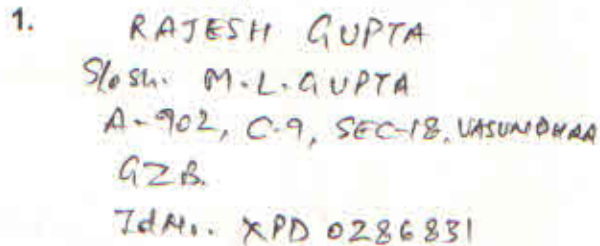 1. RAJESH GUPTA
S/o Sh. M.L. GUPTA
A-902, C-9, SEC-18, VASUNDHAA
GZB.
Id No. XPD 0286831